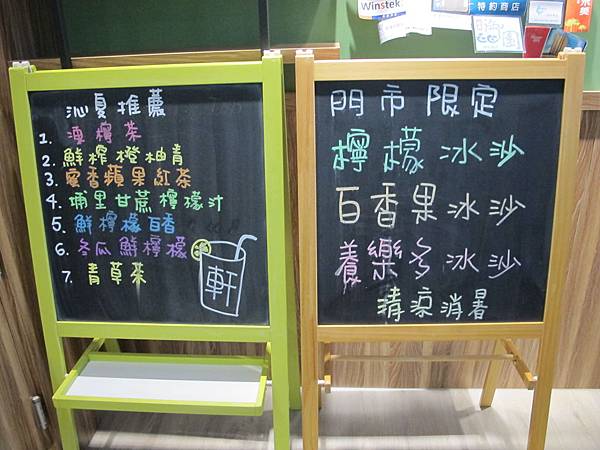 Winstek
特約商店
沁夏推薦
1. 凍檸茶
2. 鮮榨橙柚青
3. 蜜香蘋果紅茶
4. 埔里甘蔗檸檬汁
5. 鮮檸檬百香
6. 冬瓜鮮檸檬
7. 青草茶
軒
門市限定
檸檬冰沙
百香果冰沙
養樂多冰沙
清涼消暑